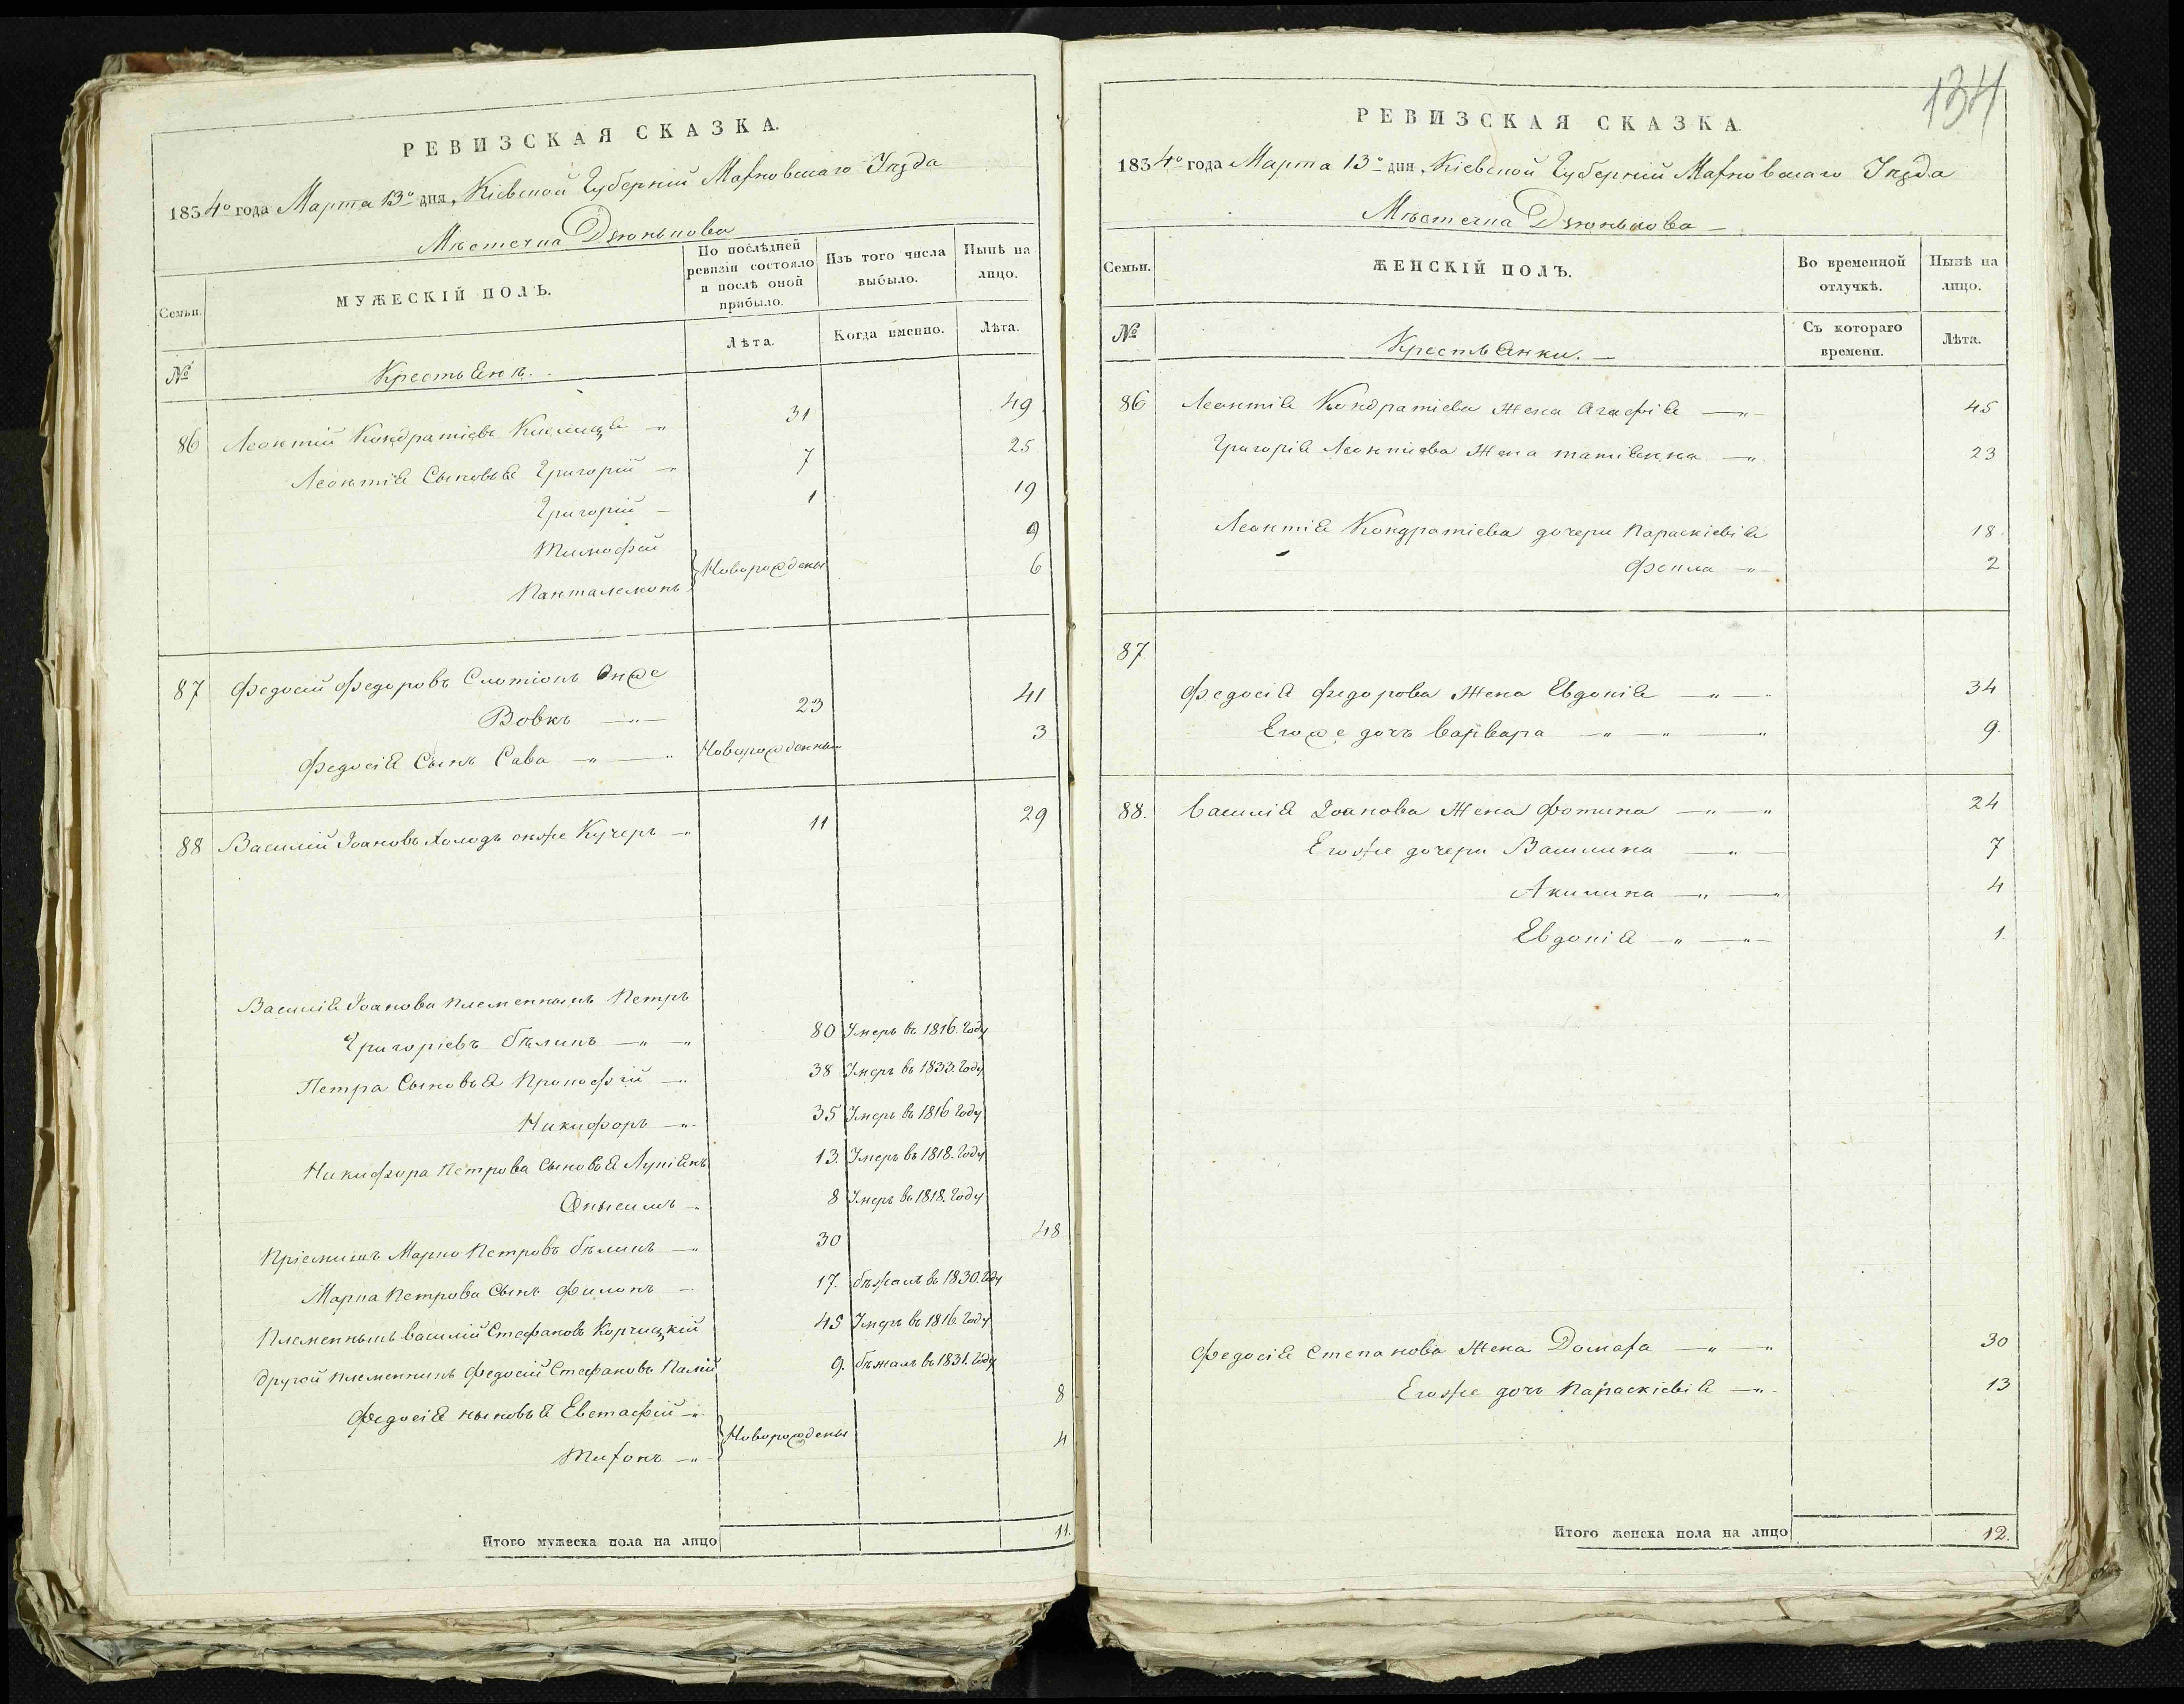 РЕВИЗСКАЯ СКАЗКА.
1834го года Марта 13го дня, Кіевской Губерніи Махновскаго Уѣзда
Мѣстечка Дзюнькова
Семьи.
МУЖЕСКІЙ ПОЛЪ.
По послѣдней ревизіи состояло и послѣ оной прибыло.
Изъ того числа выбыло.
Нынѣ на лицо.
№
Крестьянъ.
Лѣта.
Когда именно.
Лѣта.
86 Леонтій Кондратіевъ 31 49
Леонтія Сыновья Григорій 7 25
Григорій 1 19
Тимофей 9
Новорождены
Панталемонъ 6
87 Федосій Федоровъ онже
Вовкъ 23 41
Федосія Сынъ Сава Новорожденный 3
88 Василій Іоановъ Холодъ онже Кучеръ 11 29
Василія Іоанова племенныкъ Петръ
Григоріевъ Бѣликъ 80 Умеръ въ 1816. Году
Петра Сыновья Прокофій 38 Умеръ въ 1833. Году
Никифоръ 35 Умеръ въ 1816 Году
Никифора Петрова Сыновья Лукіянъ 13. Умеръ въ 1818. Году
Онысимъ 8 Умеръ въ 1818. Году
Пріемышъ Марко Петровъ Бѣликъ 30 48
Марка Петрова Сынъ Филипъ 17. бѣжалъ въ 1830. Году
Племенныкъ Василій Стефановъ Корчицкій 45 Умеръ въ 1816 Году
другой племенникъ Федосій Стефановъ Палій 9. бѣжалъ въ 1831. Году
Федосія сыновья Евстафій 8
Новорождены
Тихонъ 4
Итого мужеска пола на лицо 11.
134
РЕВИЗСКАЯ СКАЗКА.
1834го года Марта 13го дня, Кіевской Губерніи Махновскаго Уѣзда
Мѣстечка Дзюнькова
Семьи.
ЖЕНСКІЙ ПОЛЪ.
Во временной отлучкѣ.
Нынѣ на лицо.
№
Крестьянки.
Съ котораго времени.
Лѣта.
86 Леонтія Кондратіева жена Агафія 45
Григорія Леонтіева жена татіянна 23
Леонтія Кондратіева дочери Параскіевія 18
Фекла 2
87.
Федосія Федорова жена Евдокія 34
Егоже дочъ Варвара 9
88. Василія Іоанова жена Фотина 24
Егоже дочери Василина 7
Акилина 4
Евдокія 1.
Федосія Степанова жена Домаха 30
Егоже дочъ Параскіевія 13
Итого женска пола на лицо 12.